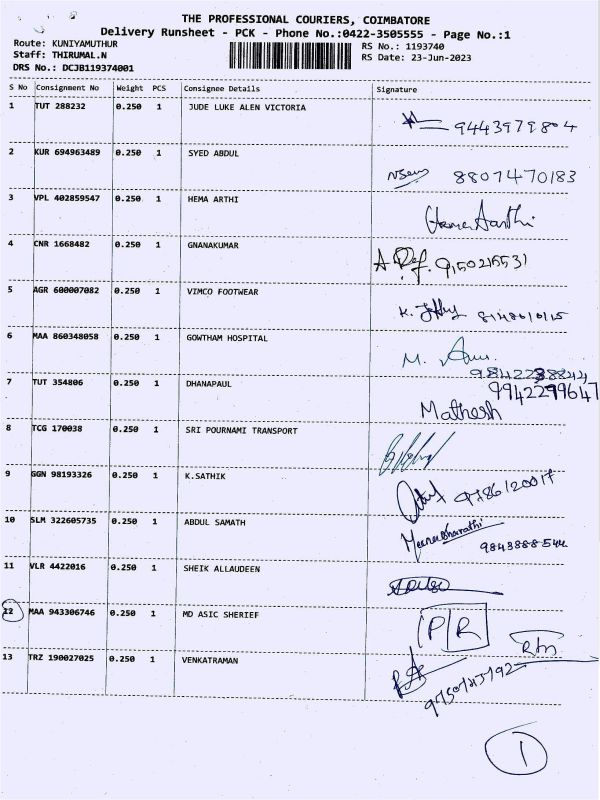 THE PROFESSIONAL COURIERS, COIMBATORE
Delivery Runsheet - PCK - Phone No.:0422-3505555 - Page No.:1
Route: KUNIYAMUTHUR RS No.: 1193740
Staff: THIRUMAL.N RS Date: 23-Jun-2023
DRS No.: DCJB119374001
S No Consignment No Weight PCS Consignee Details Signature
1 TUT 288232 0.250 1 JUDE LUKE ALEN VICTORIA
9443979804
2 KUR 694963489 0.250 1 SYED ABDUL
8807470183
3 VPL 402859547 0.250 1 HEMA ARTHI
Hema Aarthi
4 CNR 1668482 0.250 1 GNANAKUMAR
5 AGR 600007082 0.250 1 VIMCO FOOTWEAR
K.
6 MAA 860348058 0.250 1 GOWTHAM HOSPITAL
M.
7 TUT 354806 0.250 1 DHANAPAUL
9942299647
Mathesh
8 TCG 170038 0.250 1 SRI POURNAMI TRANSPORT
9 GGN 98193326 0.250 1 K.SATHIK
9786120017
10 SLM 322605735 0.250 1 ABDUL SAMATH
Meenabharathi
9843888544
11 VLR 4422016 0.250 1 SHEIK ALLAUDEEN
12 MAA 943306746 0.250 1 MD ASIC SHERIEF
P R
13 TRZ 190027025 0.250 1 VENKATRAMAN
1